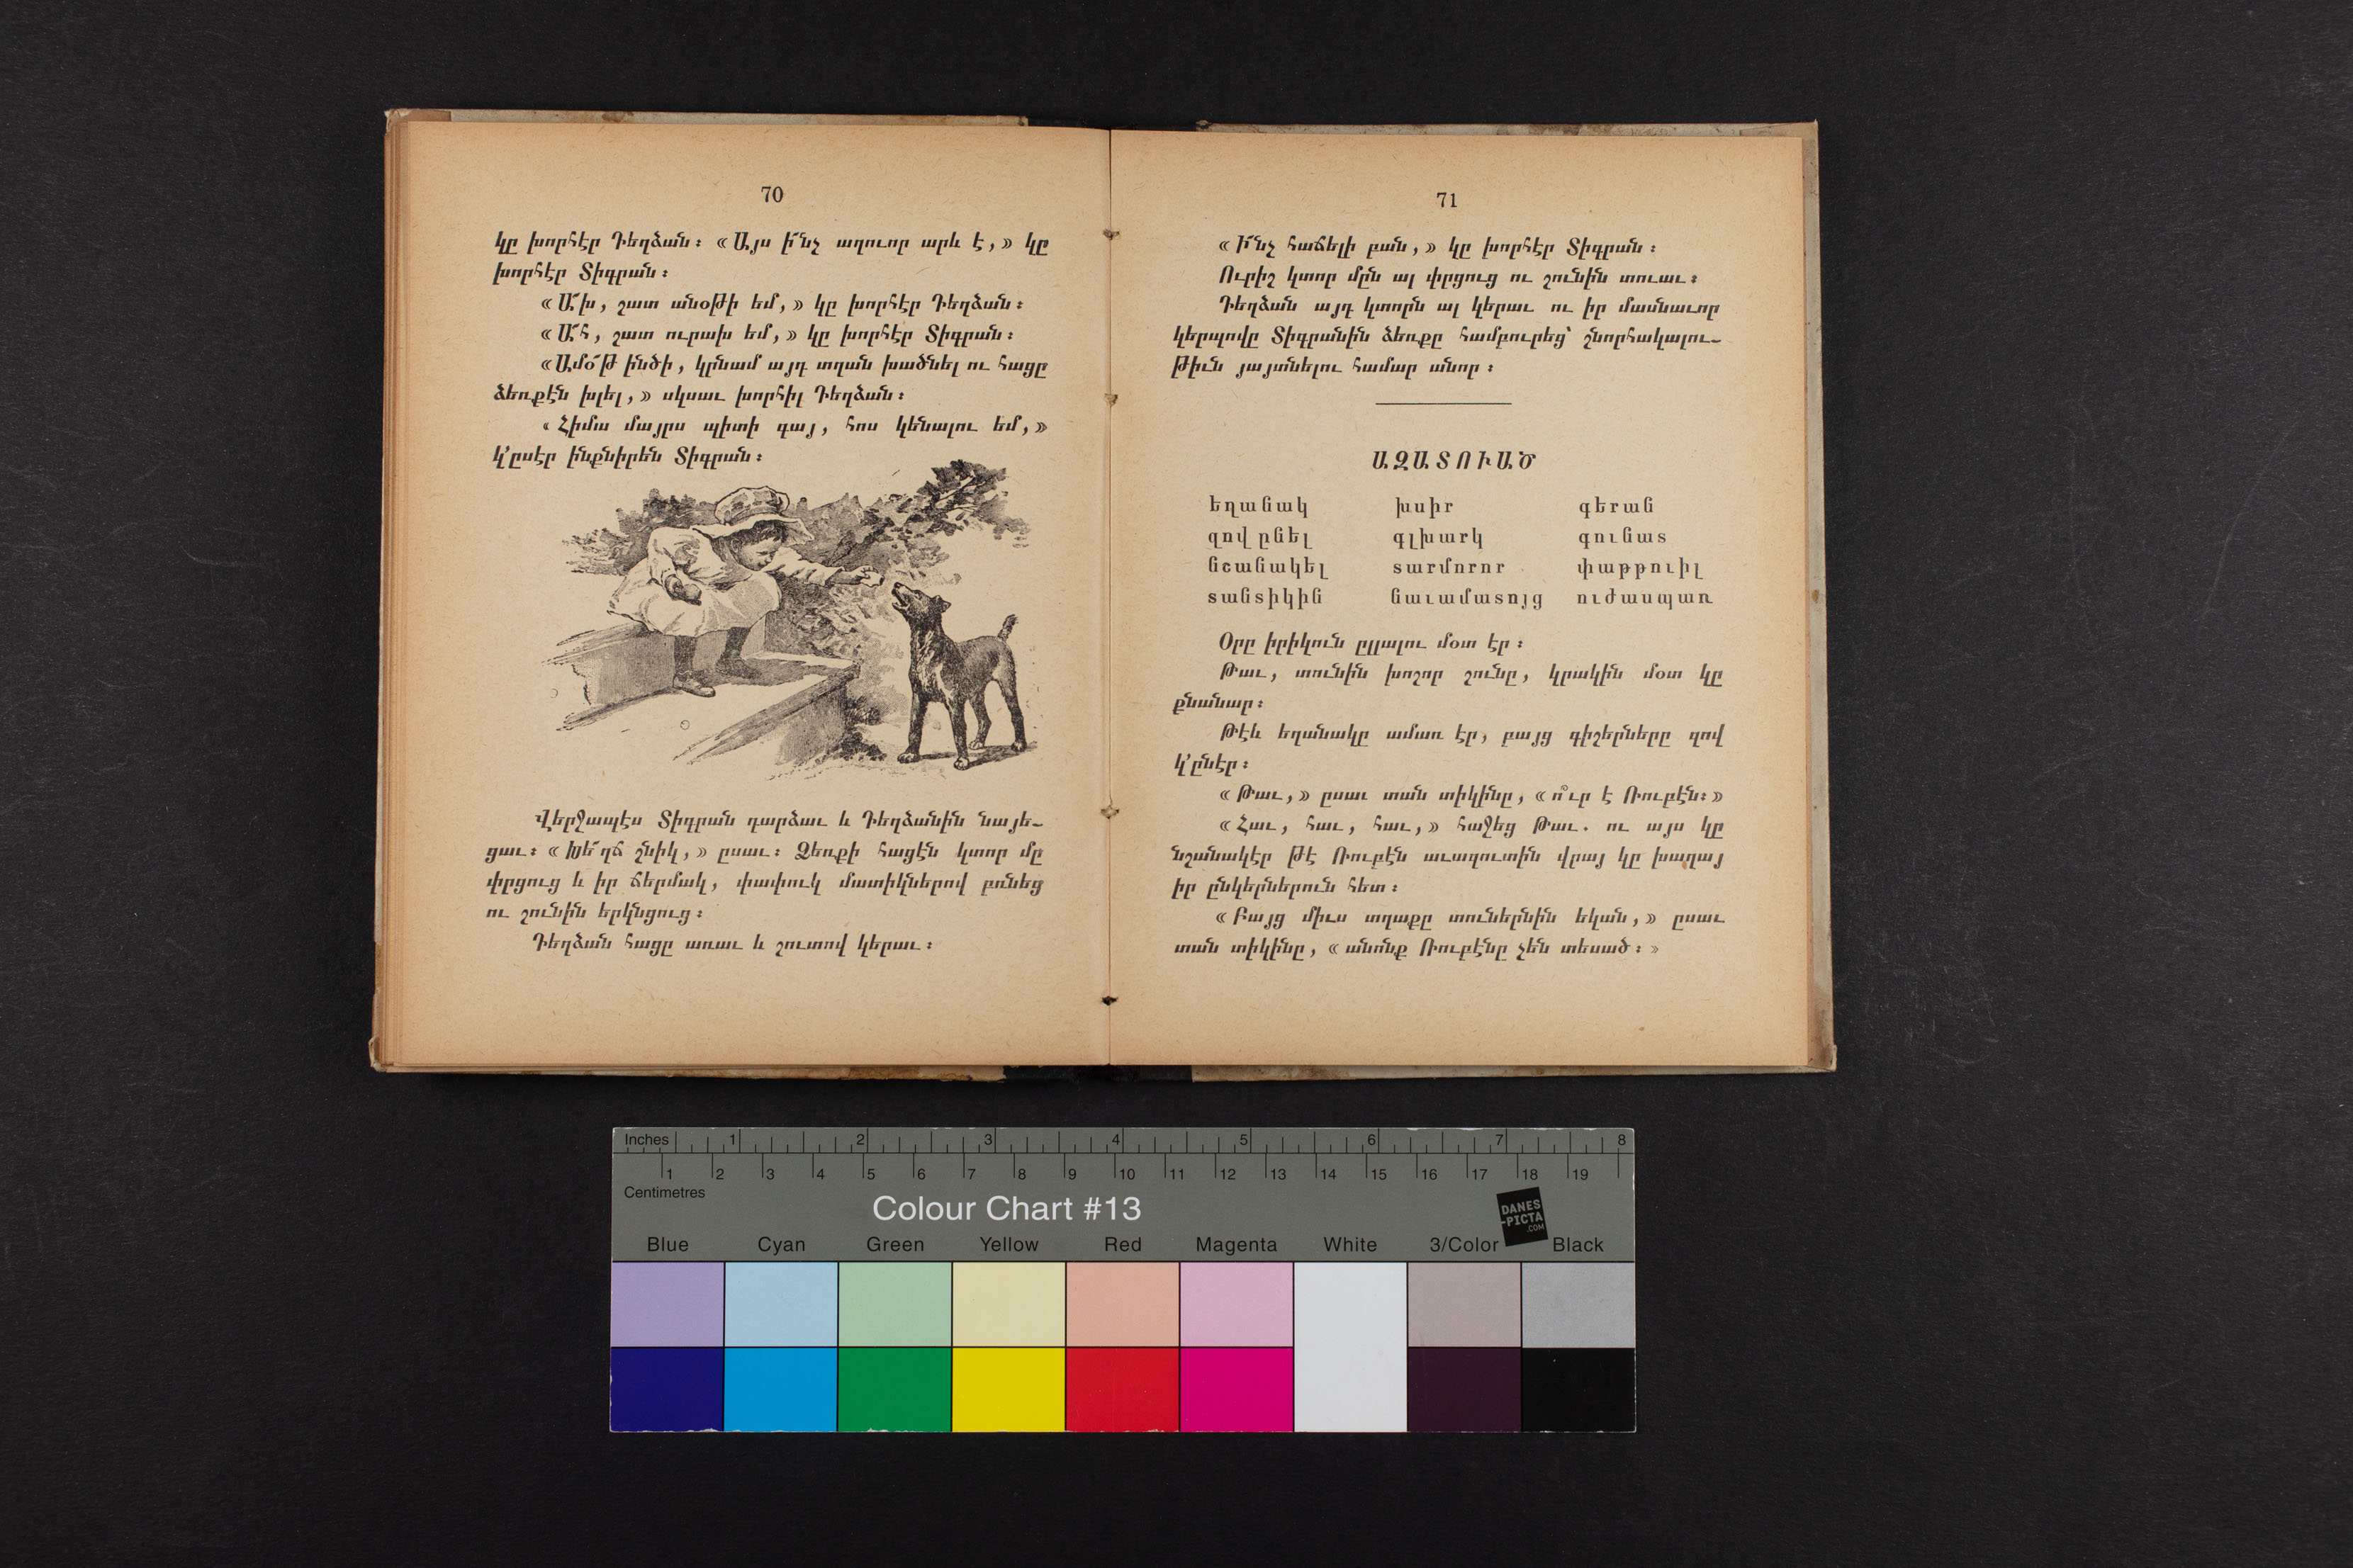 70
կը խորհէր Դեղձան։ «Այս ի՜նչ աղուոր արև է,» կը
խորհէր Տիգրան։
«Ա՜խ, շատ անօթի եմ,» կը խորհէր Դեղձան։
«Ա՜հ, շատ ուրախ եմ,» կը խորհէր Տիգրան։
«Ամօ՜թ ինծի, կրնամ այդ տղան խածնել ու հացը
ձեռքէն խլել,» սկսաւ խորհիլ Դեղձան։
«Հիմա մայրս պիտի գայ, հոս կենալու եմ,»
կ՚ըսէր ինքնիրեն Տիգրան։
Վերջապէս Տիգրան դարձաւ և Դեղձանին նայե-
ցաւ։ «Խե՜ղճ շնիկ,» ըսաւ։ Ձեռքի հացէն կտոր մը
փրցուց և իր ճերմակ, փափուկ մատիկներով բռնեց
ու շունին երկնցուց։
Դեղձան հացը առաւ և շուտով կերաւ։
71
«Ի՜նչ հաճելի բան,» կը խորհէր Տիգրան։
Ուրիշ կտոր մըն ալ փրցուց ու շունին տուաւ։
Դեղձան այդ կտորն ալ կերաւ ու իր մասնաւոր
կերպովը Տիգրանին ձեռքը համբուրեց՝ շնորհակալու-
թիւն յայտնելու համար անոր։
ԱԶԱՏՈՒԱԾ
եղանակ խսիր գերան
զով ընել գլխարկ գունատ
նշանակել տարմորոր փաթթուիլ
տանտիկին նաւամատոյց ուժասպառ
Օրը իրիկուն ըլլալու մօտ էր։
Թաւ, տունին խոշոր շունը, կրակին մօտ կը
քնանար։
Թէև եղանակը ամառ էր, բայց գիշերները զով
կ՚ընէր։
«Թաւ,» ըսաւ տան տիկինը, «ո՞ւր է Ռուբէն։»
«Հաւ, հաւ, հաւ,» հաջեց Թաւ. ու այս կը
նշանակէր թէ Ռուբէն աւազուտին վրայ կը խաղայ
իր ընկերներուն հետ։
«Բայց միւս տղաքը տուներնին եկան,» ըսաւ
տան տիկինը, «անոնք Ռուբէնը չեն տեսած։»
Inches 1 2 3 4 5 6 7 8
1 2 3 4 5 6 7 8 9 10 11 12 13 14 15 16 17 18 19
Centimetres
Colour Chart #13
DANES
-PICTA
.COM
Blue Cyan Green Yellow Red Magenta White 3/Color Black